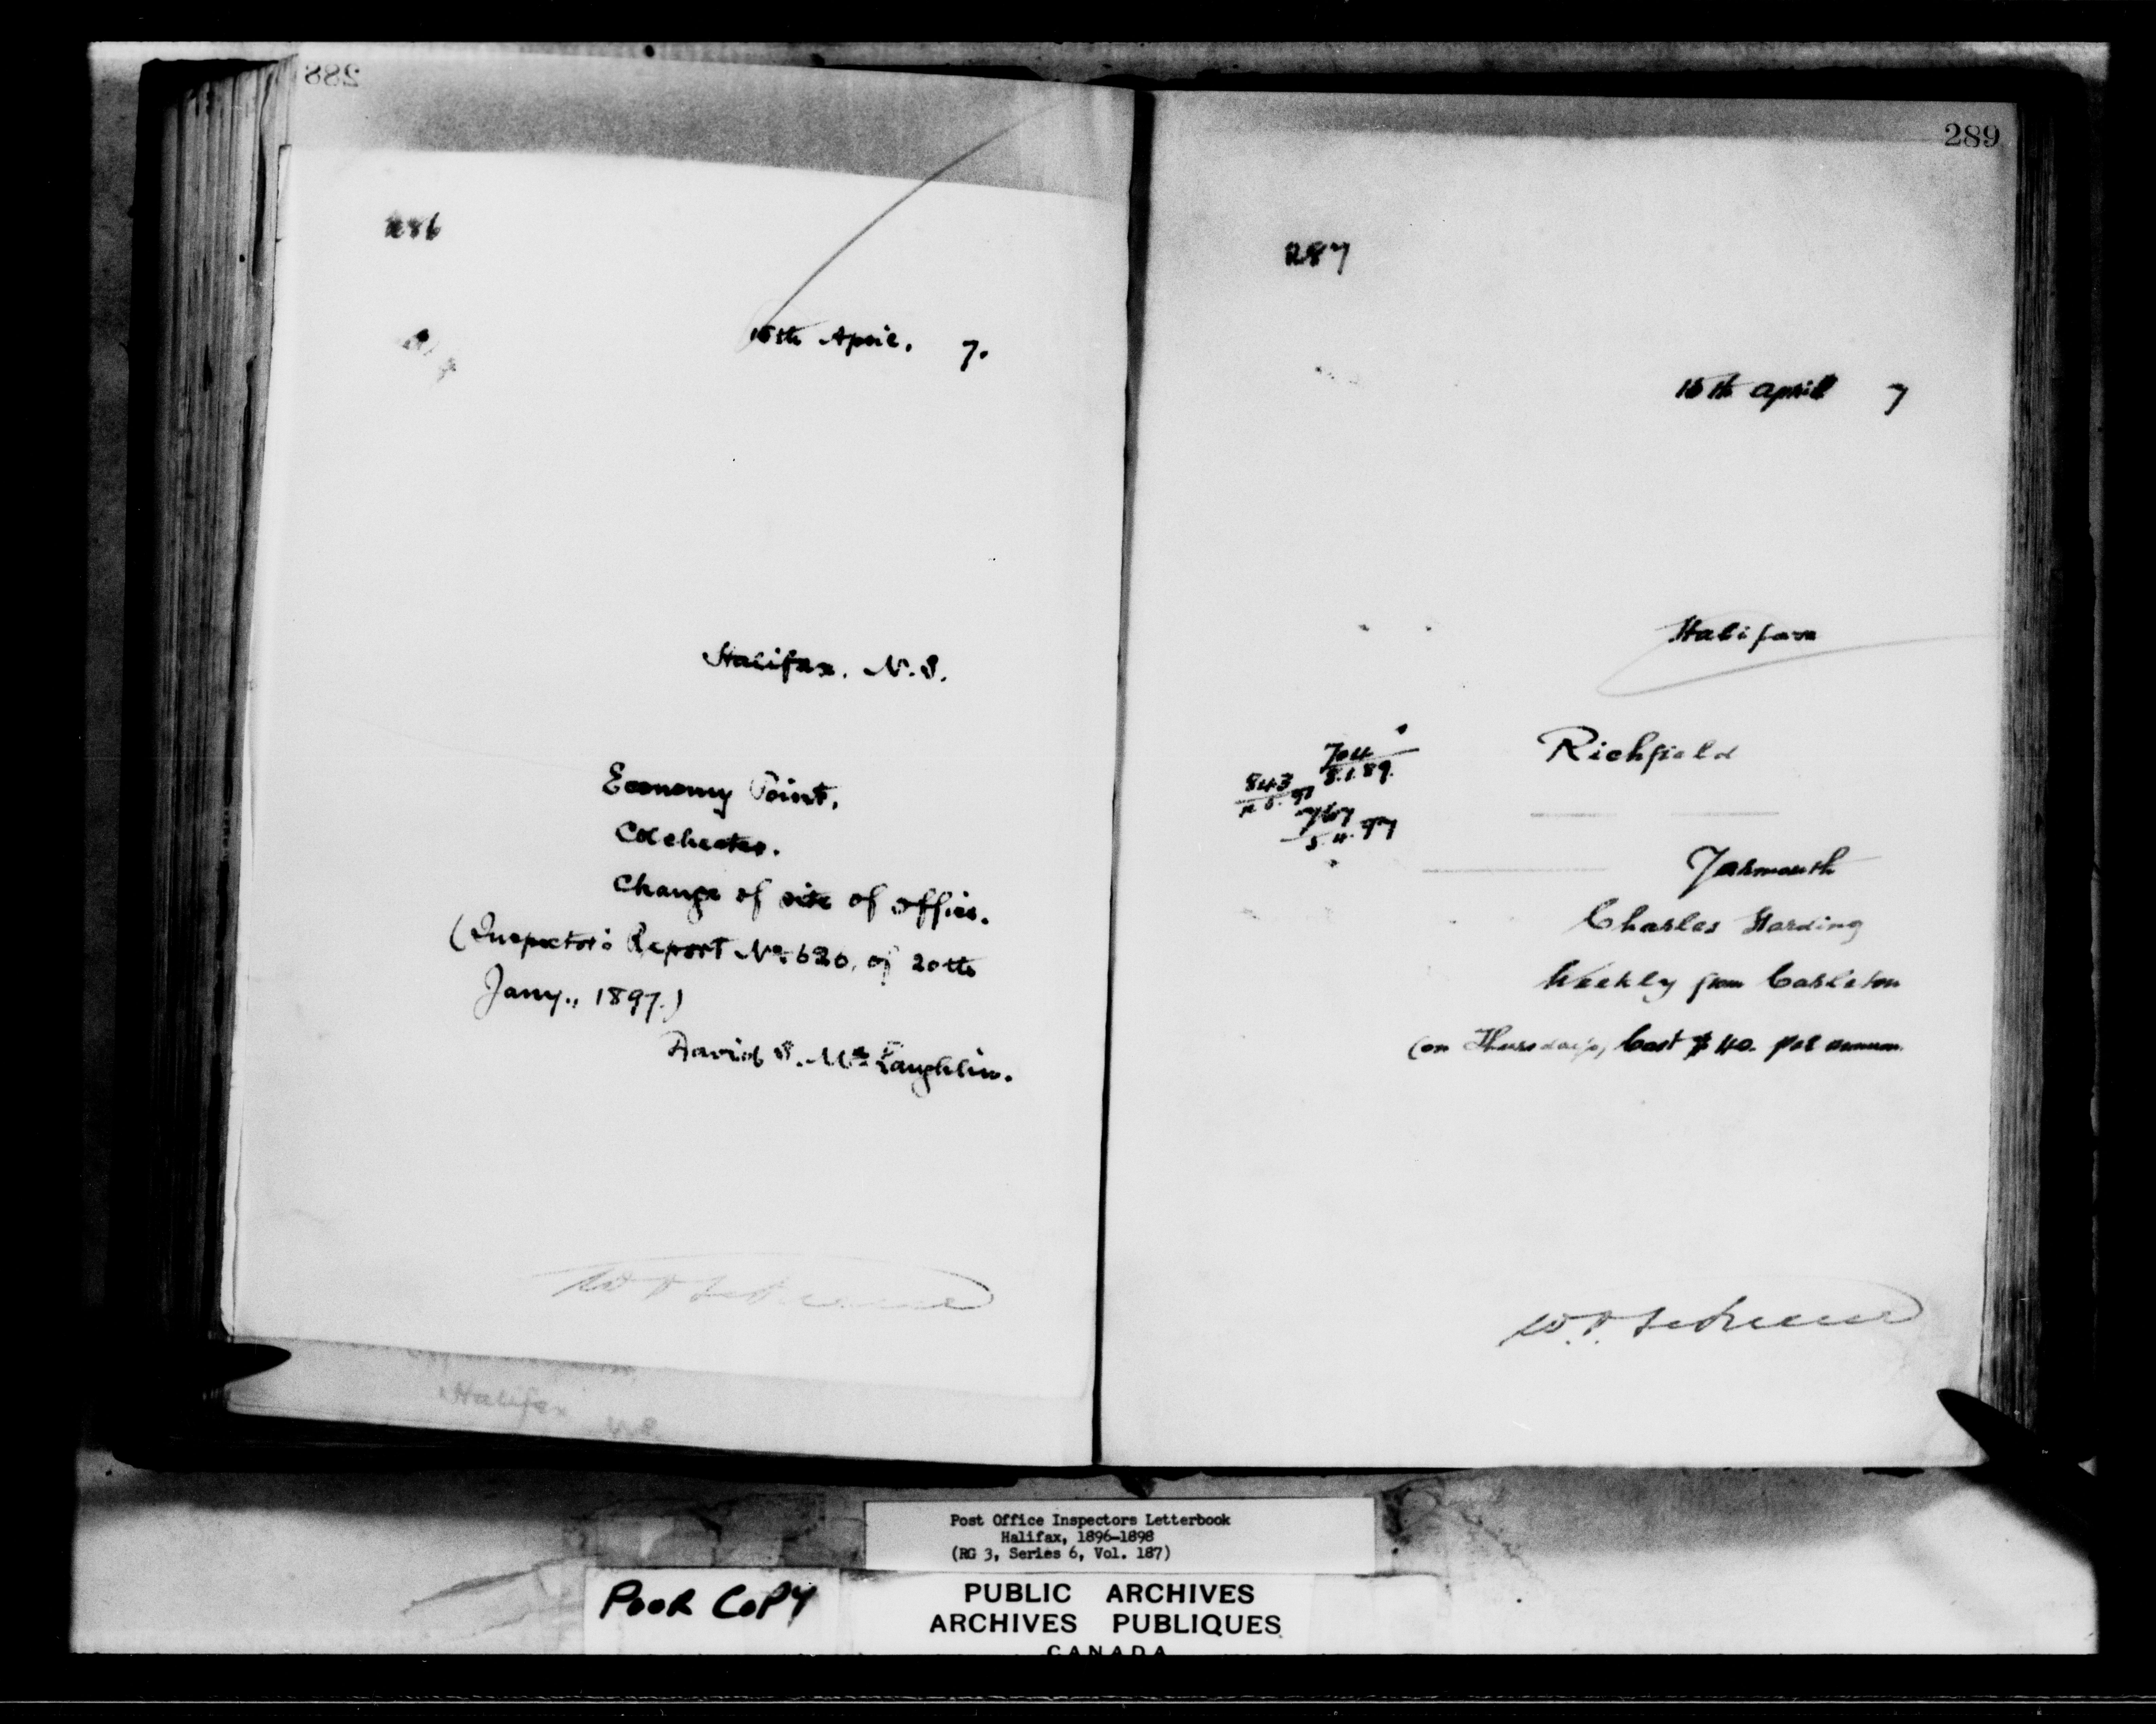 288
286
15th April, 7.
Halifax, N.S.
Economy Point,
Colchester.
Change of site of office.
(Inspector's Report No. 620, of 20th
Jany., 1897.)
David S. McLaughlin.
Halifax N.S
289
287
15th April 7
Halifax
Richfield
704
8.1.89.
843
767
5.4.97
Yarmouth
Charles Harding
Weekly from Carleton
(on Thursdays) Cost $40. per annum.
Post Office Inspectors Letterbook
Halifax, 1896-1898
(RG 3, Series 6, Vol. 187)
POOR COPY
PUBLIC ARCHIVES
ARCHIVES PUBLIQUES
CANADA